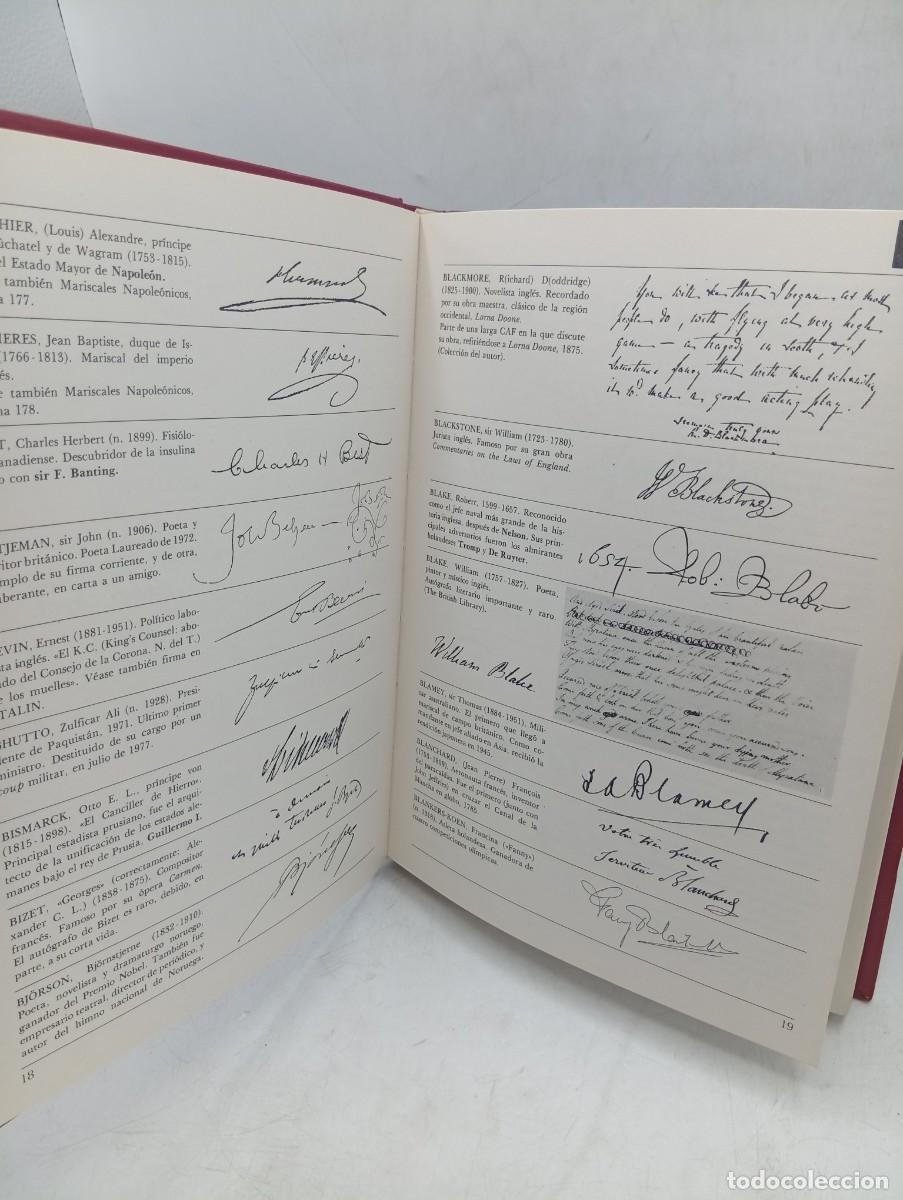 HIER, (Louis) Alexandre, príncipe
üchatel y de Wagram (1753-1815).
el Estado Mayor de Napoleón.
también Mariscales Napoleónicos,
a 177.
IERES, Jean Baptiste, duque de Is-
(1766-1813). Mariscal del imperio
és.
e también Mariscales Napoleónicos,
na 178.
T, Charles Herbert (n. 1899). Fisiólo-
anadiense. Descubridor de la insulina
o con sir F. Banting.
Charles H Best
TJEMAN, sir John (n. 1906). Poeta y
ritor británico. Poeta Laureado de 1972.
mplo de su firma corriente, y de otra,
uberante, en carta a un amigo.
EVIN, Ernest (1881-1951). Político labo-
ista inglés. «El K.C. (King's Counsel: abo-
do del Consejo de la Corona. N. del T.)
e los muelles». Véase también firma en
TALIN.
BHUTTO, Zulficar Ali (n. 1928). Presi-
dente de Paquistán, 1971. Ultimo primer
ministro. Destituido de su cargo por un
coup militar, en julio de 1977.
BISMARCK, Otto E. L., príncipe von
(1815-1898). «El Canciller de Hierro».
Principal estadista prusiano, fue el arqui-
tecto de la unificación de los estados ale-
manes bajo el rey de Prusia, Guillermo I.
BIZET, «Georges» (correctamente: Ale-
xander C. L.) (1838-1875). Compositor
francés. Famoso por su ópera Carmen.
El autógrafo de Bizet es raro, debido, en
parte, a su corta vida.
BJÖRSON, Björnstjerne (1832-1910).
Poeta, novelista y dramaturgo noruego,
ganador del Premio Nobel. También fue
empresario teatral, director de periódico, y
autor del himno nacional de Noruega.
18
BLACKMORE, R(ichard) D(oddridge)
(1825-1900). Novelista inglés. Recordado
por su obra maestra, clásico de la región
occidental, Lorna Doone.
Parte de una larga CAF en la que discute
su obra, refiriéndose a Lorna Doone, 1875.
(Colección del autor).
You will see that I began, as most
people do, with flying at very high
game — a tragedy in sooth,
sometimes fancy that with much
it to make a good acting play.
BLACKSTONE, sir William (1723-1780).
Jurista inglés. Famoso por su gran obra
Commentaries on the Laws of England.
W Blackstone.
BLAKE, Robert, 1599-1657. Reconocido
como el jefe naval más grande de la his-
toria inglesa, después de Nelson. Sus prin-
cipales adversarios fueron los almirantes
holandeses Tromp y De Ruyter.
1654. Rob: Blake
BLAKE, William (1757-1827). Poeta,
pintor y místico inglés.
Autógrafo literario importante y raro.
(The British Library).
William Blake
BLAMEY, sir Thomas (1884-1951). Mili-
tar australiano. El primero que llegó a
mariscal de campo británico. Como co-
mandante en jefe aliado en Asia, recibió la
rendición japonesa en 1945.
T A Blamey,
BLANCHARD, (Jean Pierre) François
(1753-1809). Aeronauta francés, inventor
del paracaídas. Fue el primero (junto con
John Jeffries) en cruzar el Canal de la
Mancha en globo, 1785.
votre très humble
Serviteur Blanchard
BLANKERS-KOEN, Francina («Fanny»)
(n. 1918). Atleta holandesa. Ganadora de
cuatro competiciones olímpicas.
19
todocoleccion